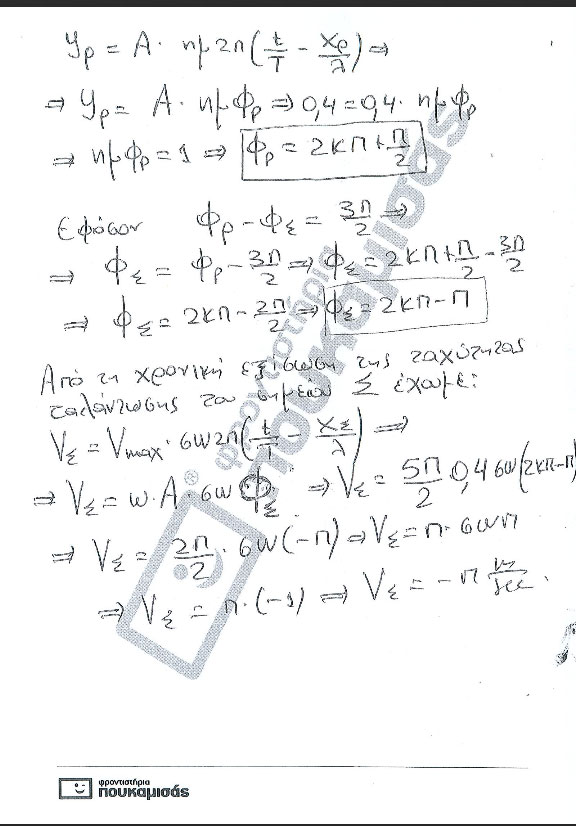 yₚ = A · ημ2π(t/T - xₚ/λ) ⇒
⇒ yₚ = A · ημφₚ ⇒ 0,4 = 0,4 · ημφₚ
⇒ ημφₚ = 1 ⇒ φₚ = 2κπ + π/2
Εφόσον φₚ - φ_Σ = 3π/2 ⇒
⇒ φ_Σ = φₚ - 3π/2 ⇒ φ_Σ = 2κπ + π/2 - 3π/2
⇒ φ_Σ = 2κπ - 2π/2 ⇒ φ_Σ = 2κπ - π
Από τη χρονική εξίσωση της ταχύτητας
ταλάντωσης του σημείου Σ έχωμε:
V_Σ = Vmax · συν2π(t/T - x_Σ/λ) ⇒
⇒ V_Σ = ω · A · συν φ_Σ ⇒ V_Σ = 5π/2 0,4 συν(2κπ-π)
⇒ V_Σ = 2π/2 · συν(-π) ⇒ V_Σ = π · συνπ
⇒ V_Σ = π · (-1) ⇒ V_Σ = -π m/sec .
φροντιστήρια
πουκαμισάς
®
φροντιστήρια
πουκαμισάς